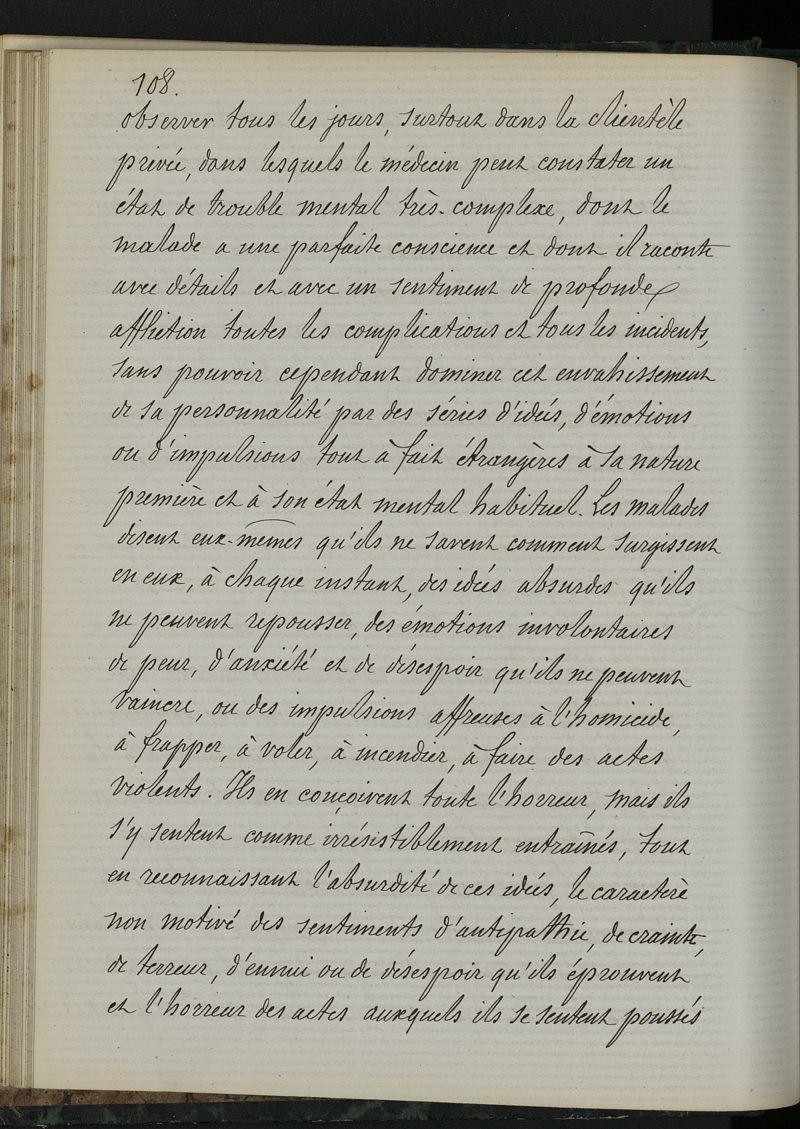 108.
observer tous les jours, surtout dans la clientèle
privée, dans lesquels le médecin peut constater un
état de trouble mental très-complexe, dont le
malade a une parfaite conscience et dont il raconte
avec détails et avec un sentiment de profonde
affliction toutes les complications et tous les incidents,
sans pouvoir cependant dominer cet envahissement
de sa personnalité par des séries d'idées, d'émotions
ou d'impulsions tout à fait étrangères à sa nature
première et à son état mental habituel. Les malades
disent eux-mêmes qu'ils ne savent comment surgissent
en eux, à chaque instant, des idées absurdes qu'ils
ne peuvent repousser, des émotions involontaires
de peur, d'anxiété et de désespoir qu'ils ne peuvent
vaincre, ou des impulsions affreuses à l'homicide,
à frapper, à voler, à incendier, à faire des actes
violents. Ils en conçoivent toute l'horreur, mais ils
s'y sentent comme irrésistiblement entraînés, tout
en reconnaissant l'absurdité de ces idées, le caractère
non motivé des sentiments d'antipathie, de crainte,
de terreur, d'ennui ou de désespoir qu'ils éprouvent
et l'horreur des actes auxquels ils se sentent poussés